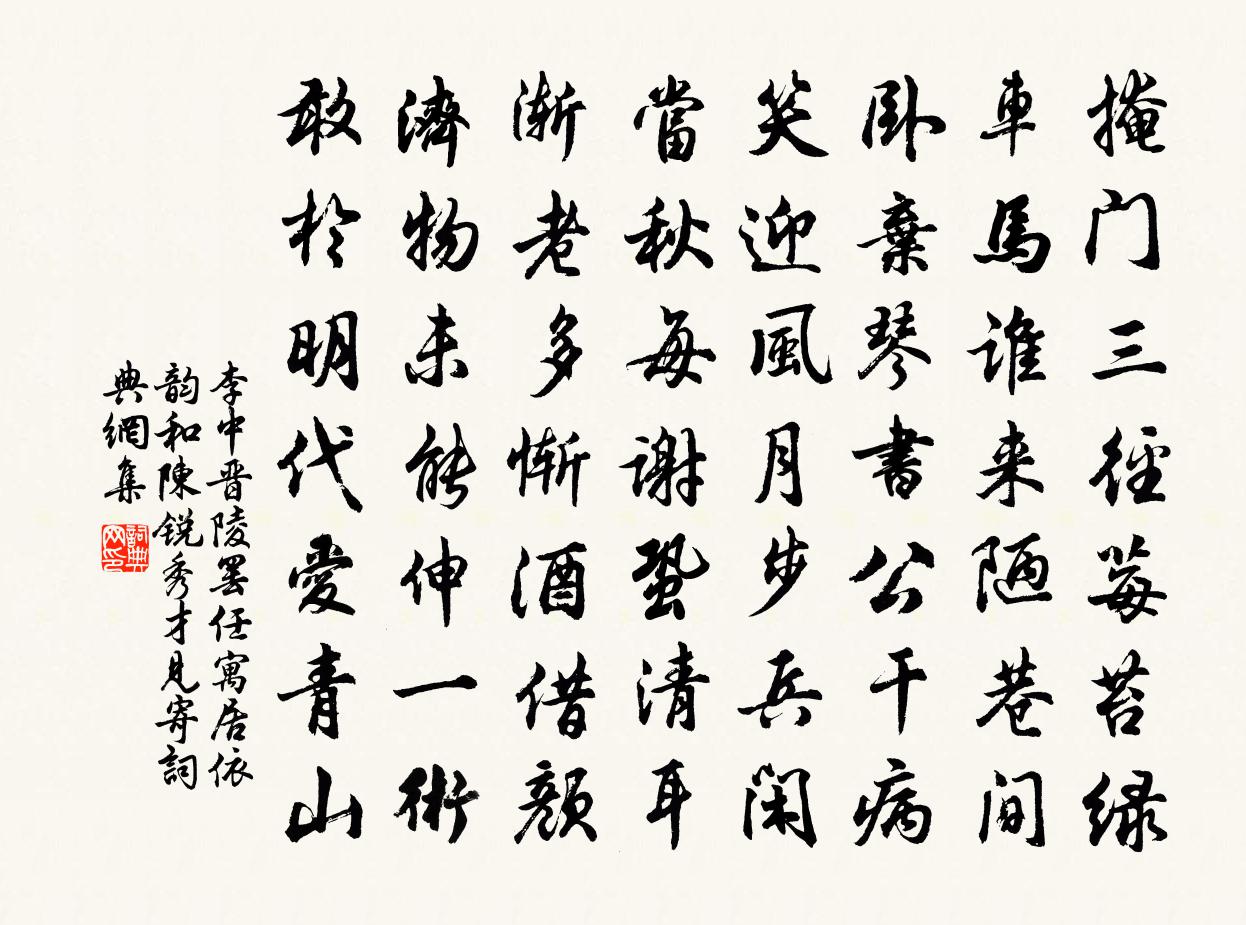 掩门三徑莓苔緑
車馬谁来陋巷间
卧棄琴書公干病
笑迎風月步兵闲
當秋每謝蛩清耳
渐老多慚酒借顔
濟物未能伸一術
敢於明代愛青山
李中晋陵罢任寓居依
韵和陳锐秀才見寄詞
典網集
詞典网印